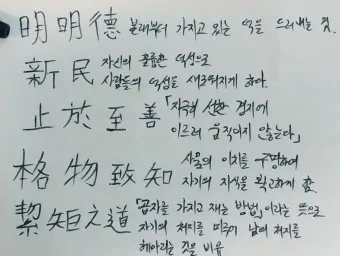 明明德 본래부터 가지고 있는 덕을 드러내는 것.
新民 자신의 훌륭한 덕성으로
사람들의 덕성을 새로워지게 하다.
止於至善 「지극히 선한 경지에
이르러 움직이지 않는다」
格物致知 사물의 이치를 구명하여
자기의 지식을 확고하게 함
絜矩之道 「곱자를 가지고 재는 방법」이라는 뜻으로
자기의 처지를 미루어 남의 처지를
헤아리는 것을 비유